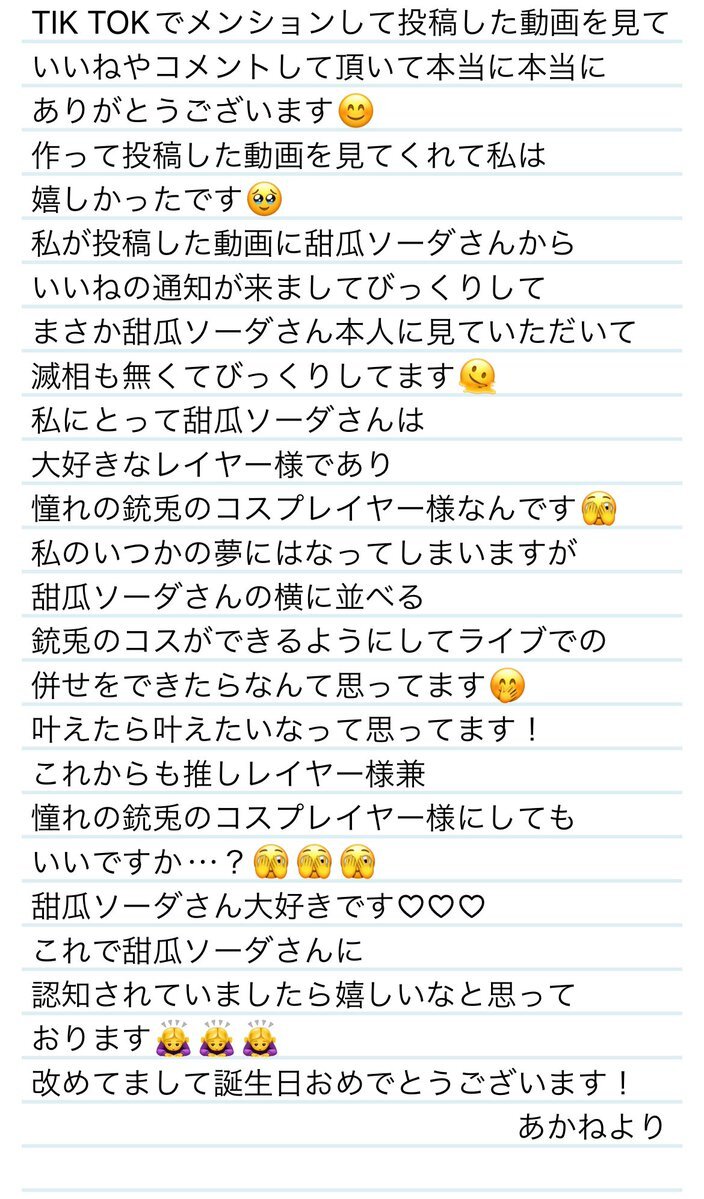 TIK TOKでメンションして投稿した動画を見て
いいねやコメントして頂いて本当に本当に
ありがとうございます😊
作って投稿した動画を見てくれて私は
嬉しかったです🥹
私が投稿した動画に甜瓜ソーダさんから
いいねの通知が来ましてびっくりして
まさか甜瓜ソーダさん本人に見ていただいて
滅相も無くてびっくりしてます🫠
私にとって甜瓜ソーダさんは
大好きなレイヤー様であり
憧れの銃兎のコスプレイヤー様なんです🫣
私のいつかの夢にはなってしまいますが
甜瓜ソーダさんの横に並べる
銃兎のコスができるようにしてライブでの
併せをできたらなんて思ってます🤭
叶えたら叶えたいなって思ってます！
これからも推しレイヤー様兼
憧れの銃兎のコスプレイヤー様にしても
いいですか…？🫣🫣🫣
甜瓜ソーダさん大好きです♡♡♡
これで甜瓜ソーダさんに
認知されていましたら嬉しいなと思って
おります🙇‍♀️🙇‍♀️🙇‍♀️
改めてまして誕生日おめでとうございます！
あかねより